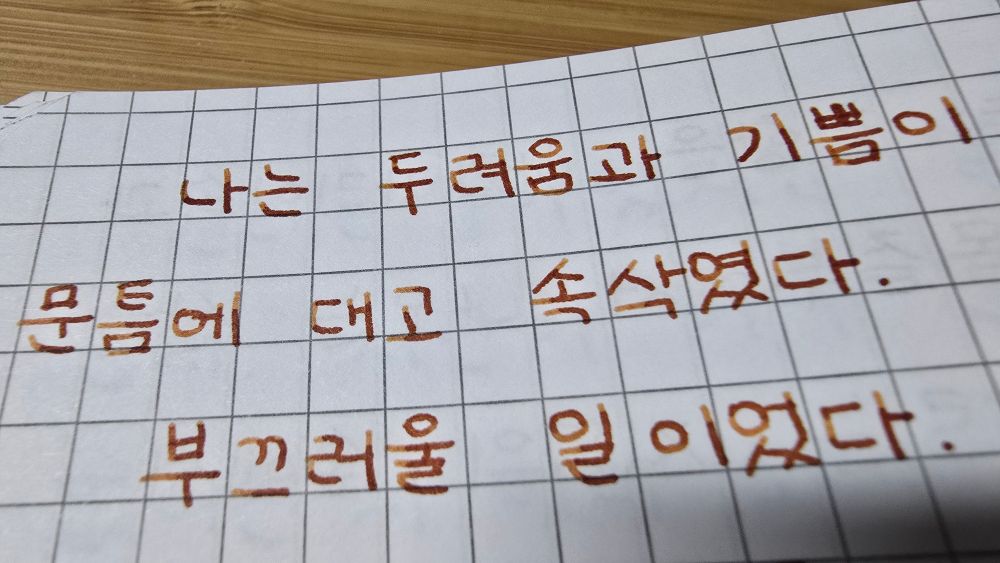 나는 두려움과 기쁨이
문틈에 대고 속삭였다.
부끄러울 일이었다.